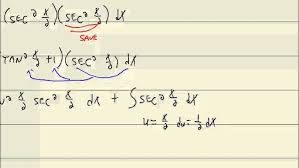 (SEC² x/2)(SEC² x/2) dx
SAVE
TAN² x/2 +1)(SEC² x/2) dx
x/2 SEC² x/2 dx + ∫SEC² x/2 dx
u = x/2 du = 1/2 dx